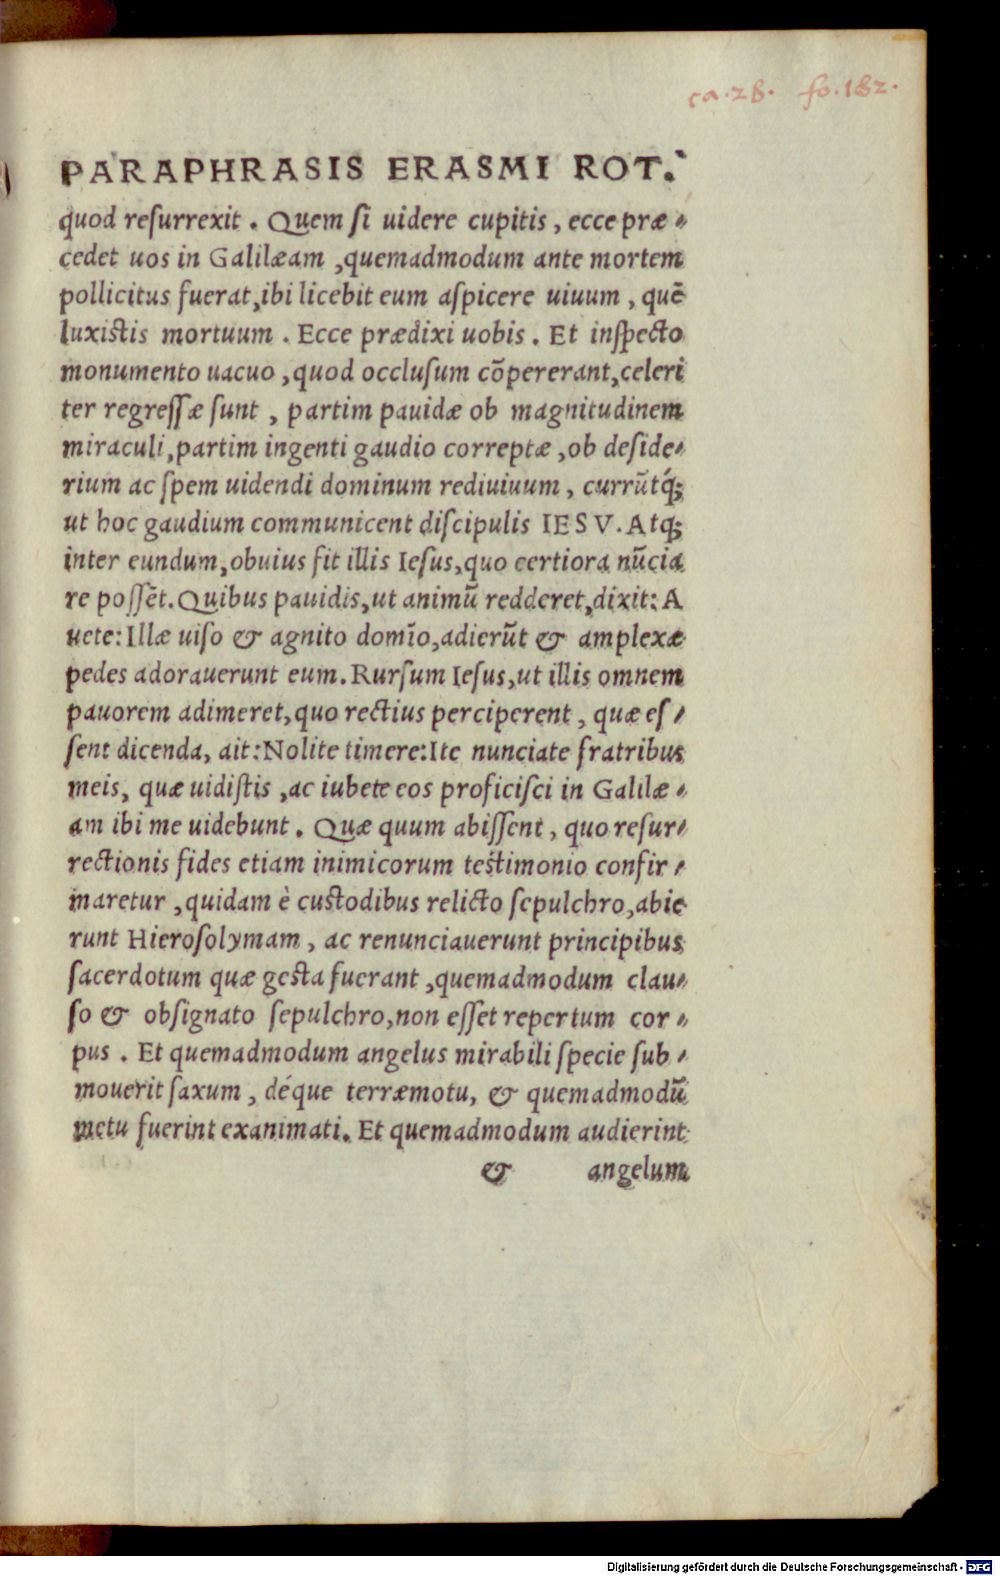 ca. 28. fo. 182.
PARAPHRASIS ERASMI ROT.
quod resurrexit. Quem si uidere cupitis, ecce præ⸗
cedet uos in Galilæam, quemadmodum ante mortem
pollicitus fuerat, ibi licebit eum aspicere uiuum, quē
luxistis mortuum. Ecce prædixi uobis. Et inspecto
monumento uacuo, quod occlusum cōpererant, celeri
ter regressæ sunt, partim pauidæ ob magnitudinem
miraculi, partim ingenti gaudio correptæ, ob deside⸗
rium ac spem uidendi dominum rediuiuum, currūtq́;
ut hoc gaudium communicent discipulis IESV. Atq;
inter eundum, obuius fit illis Iesus, quo certiora nūcia
re possēt. Quibus pauidis, ut animū redderet, dixit: A
uete: Illæ uiso & agnito domīo, adierūt & amplexæ
pedes adorauerunt eum. Rursum Iesus, ut illis omnem
pauorem adimeret, quo rectius perciperent, quæ es⸗
sent dicenda, ait: Nolite timere: Ite nunciate fratribus
meis, quæ uidistis, ac iubete eos proficisci in Galilæ⸗
am ibi me uidebunt. Quæ quum abissent, quo resur⸗
rectionis fides etiam inimicorum testimonio confir⸗
maretur, quidam è custodibus relicto sepulchro, abie
runt Hierosolymam, ac renunciauerunt principibus
sacerdotum quæ gesta fuerant, quemadmodum clau⸗
so & obsignato sepulchro, non esset repertum cor⸗
pus. Et quemadmodum angelus mirabili specie sub⸗
mouerit saxum, déque terræmotu, & quemadmodū
metu fuerint exanimati. Et quemadmodum audierint
& angelum
Digitalisierung gefördert durch die Deutsche Forschungsgemeinschaft - DFG